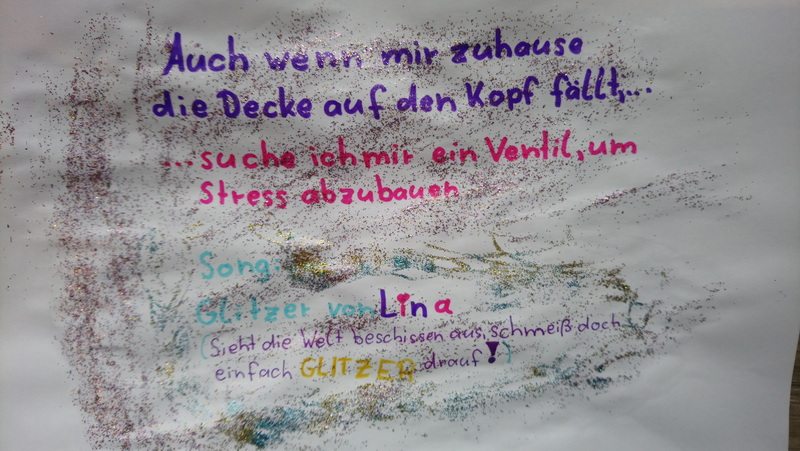 Auch wenn mir zuhause
die Decke auf den Kopf fällt,...
...suche ich mir ein Ventil, um
Stress abzubauen
Song:
Glitzer von Lina
(Sieht die Welt beschissen aus, schmeiß doch
einfach GLITZER drauf!)